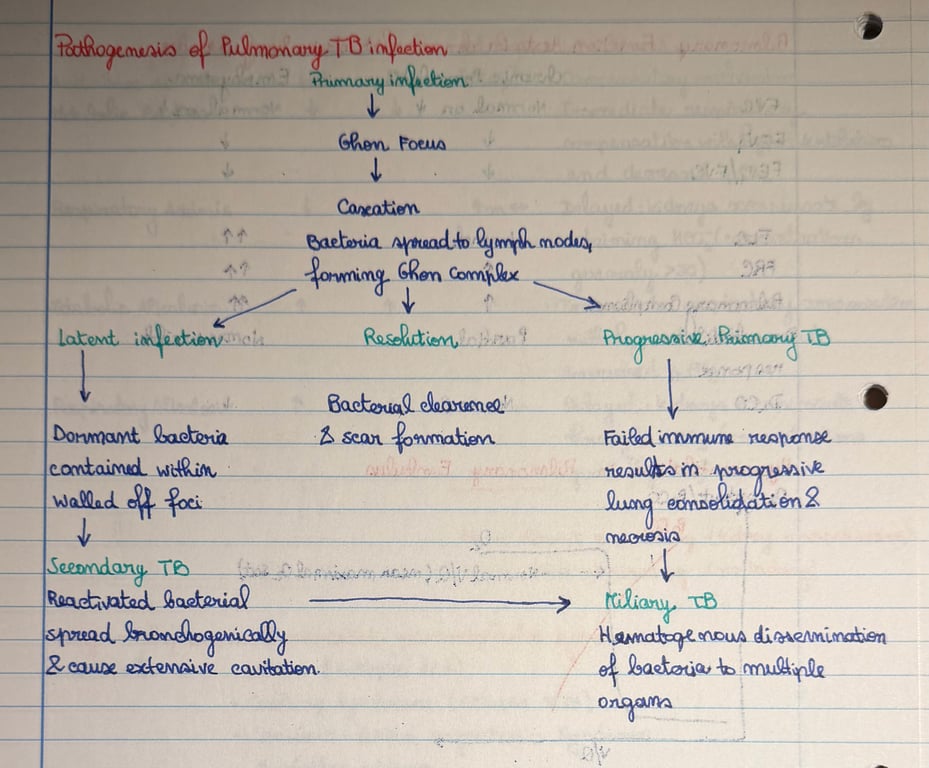 Pathogenesis of Pulmonary TB infection
Primary infection
Ghon Focus
Caseation
Bacteria spread to lymph nodes,
forming Ghon complex
Latent infection
Resolution
Progressive Primary TB
Bacterial clearence
& scar formation
Dormant bacteria
contained within
walled off foci
Failed immune response
results in progressive
lung consolidation &
necrosis
Secondary TB
Reactivated bacterial
spread bronchogenically
& cause extensive cavitation.
Miliary TB
Hematogenous dissemination
of bacteria to multiple
organs